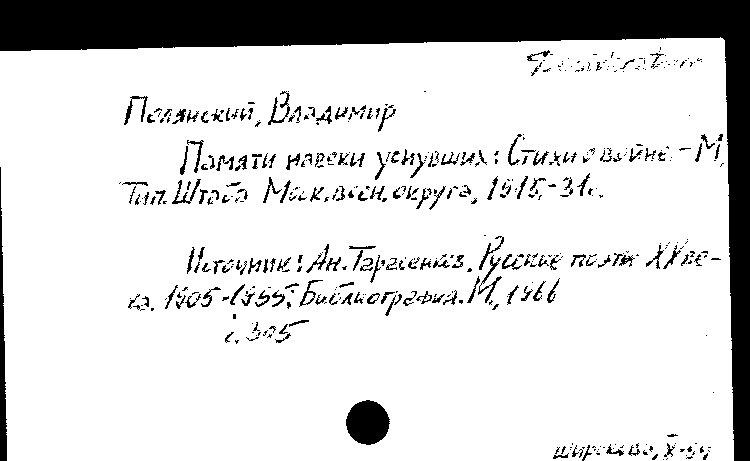 Desideratum
Полянский, Владимир
Памяти навеки уснувших: Стихи о войне. – М.,
Тип. Штаба Моск. воен. округа, 1915. – 31 с.
Источник: Ан. Тарасенков. Русские поэты XX ве-
ка. 1905–1955: Библиография. М., 1966
с. 305